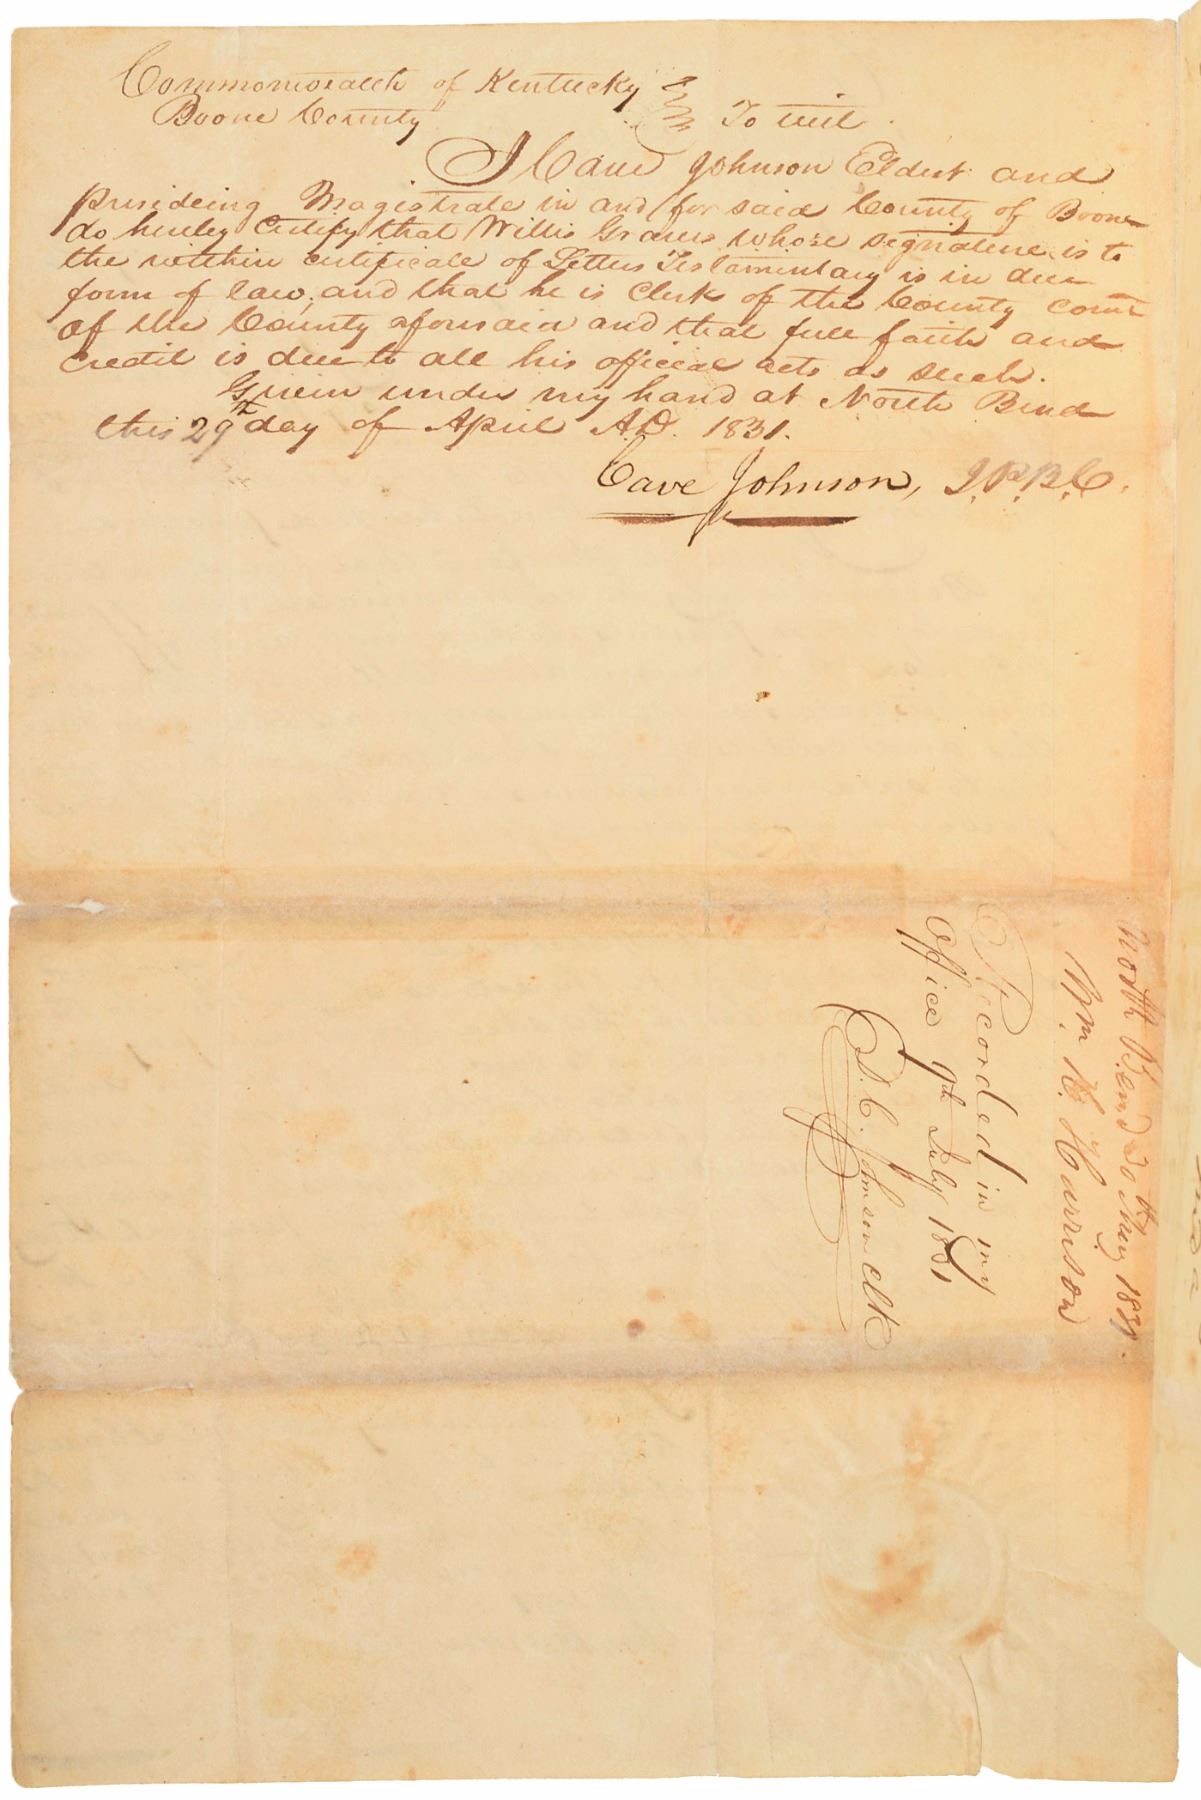 Commonwealth of Kentucky
Boone County To wit.
I Cave Johnson Eldest and
presideing Magistrate in and for said County of Boone
do hereby Certify that Willis Graves whose signature is to
the within certificate of Letters Testamentary is in due
form of law, and that he is Clerk of the County court
of the County aforesaid and that full faith and
credit is due to all his official acts as such.
Given under my hand at North Bend
this 29th day of April A.D. 1831.
Cave Johnson, J.P.B.C.
North Bend 30th May 1831.
Wm. H. Harrison
Recorded in my
Office 9th July 1831
C. Johnson Clk